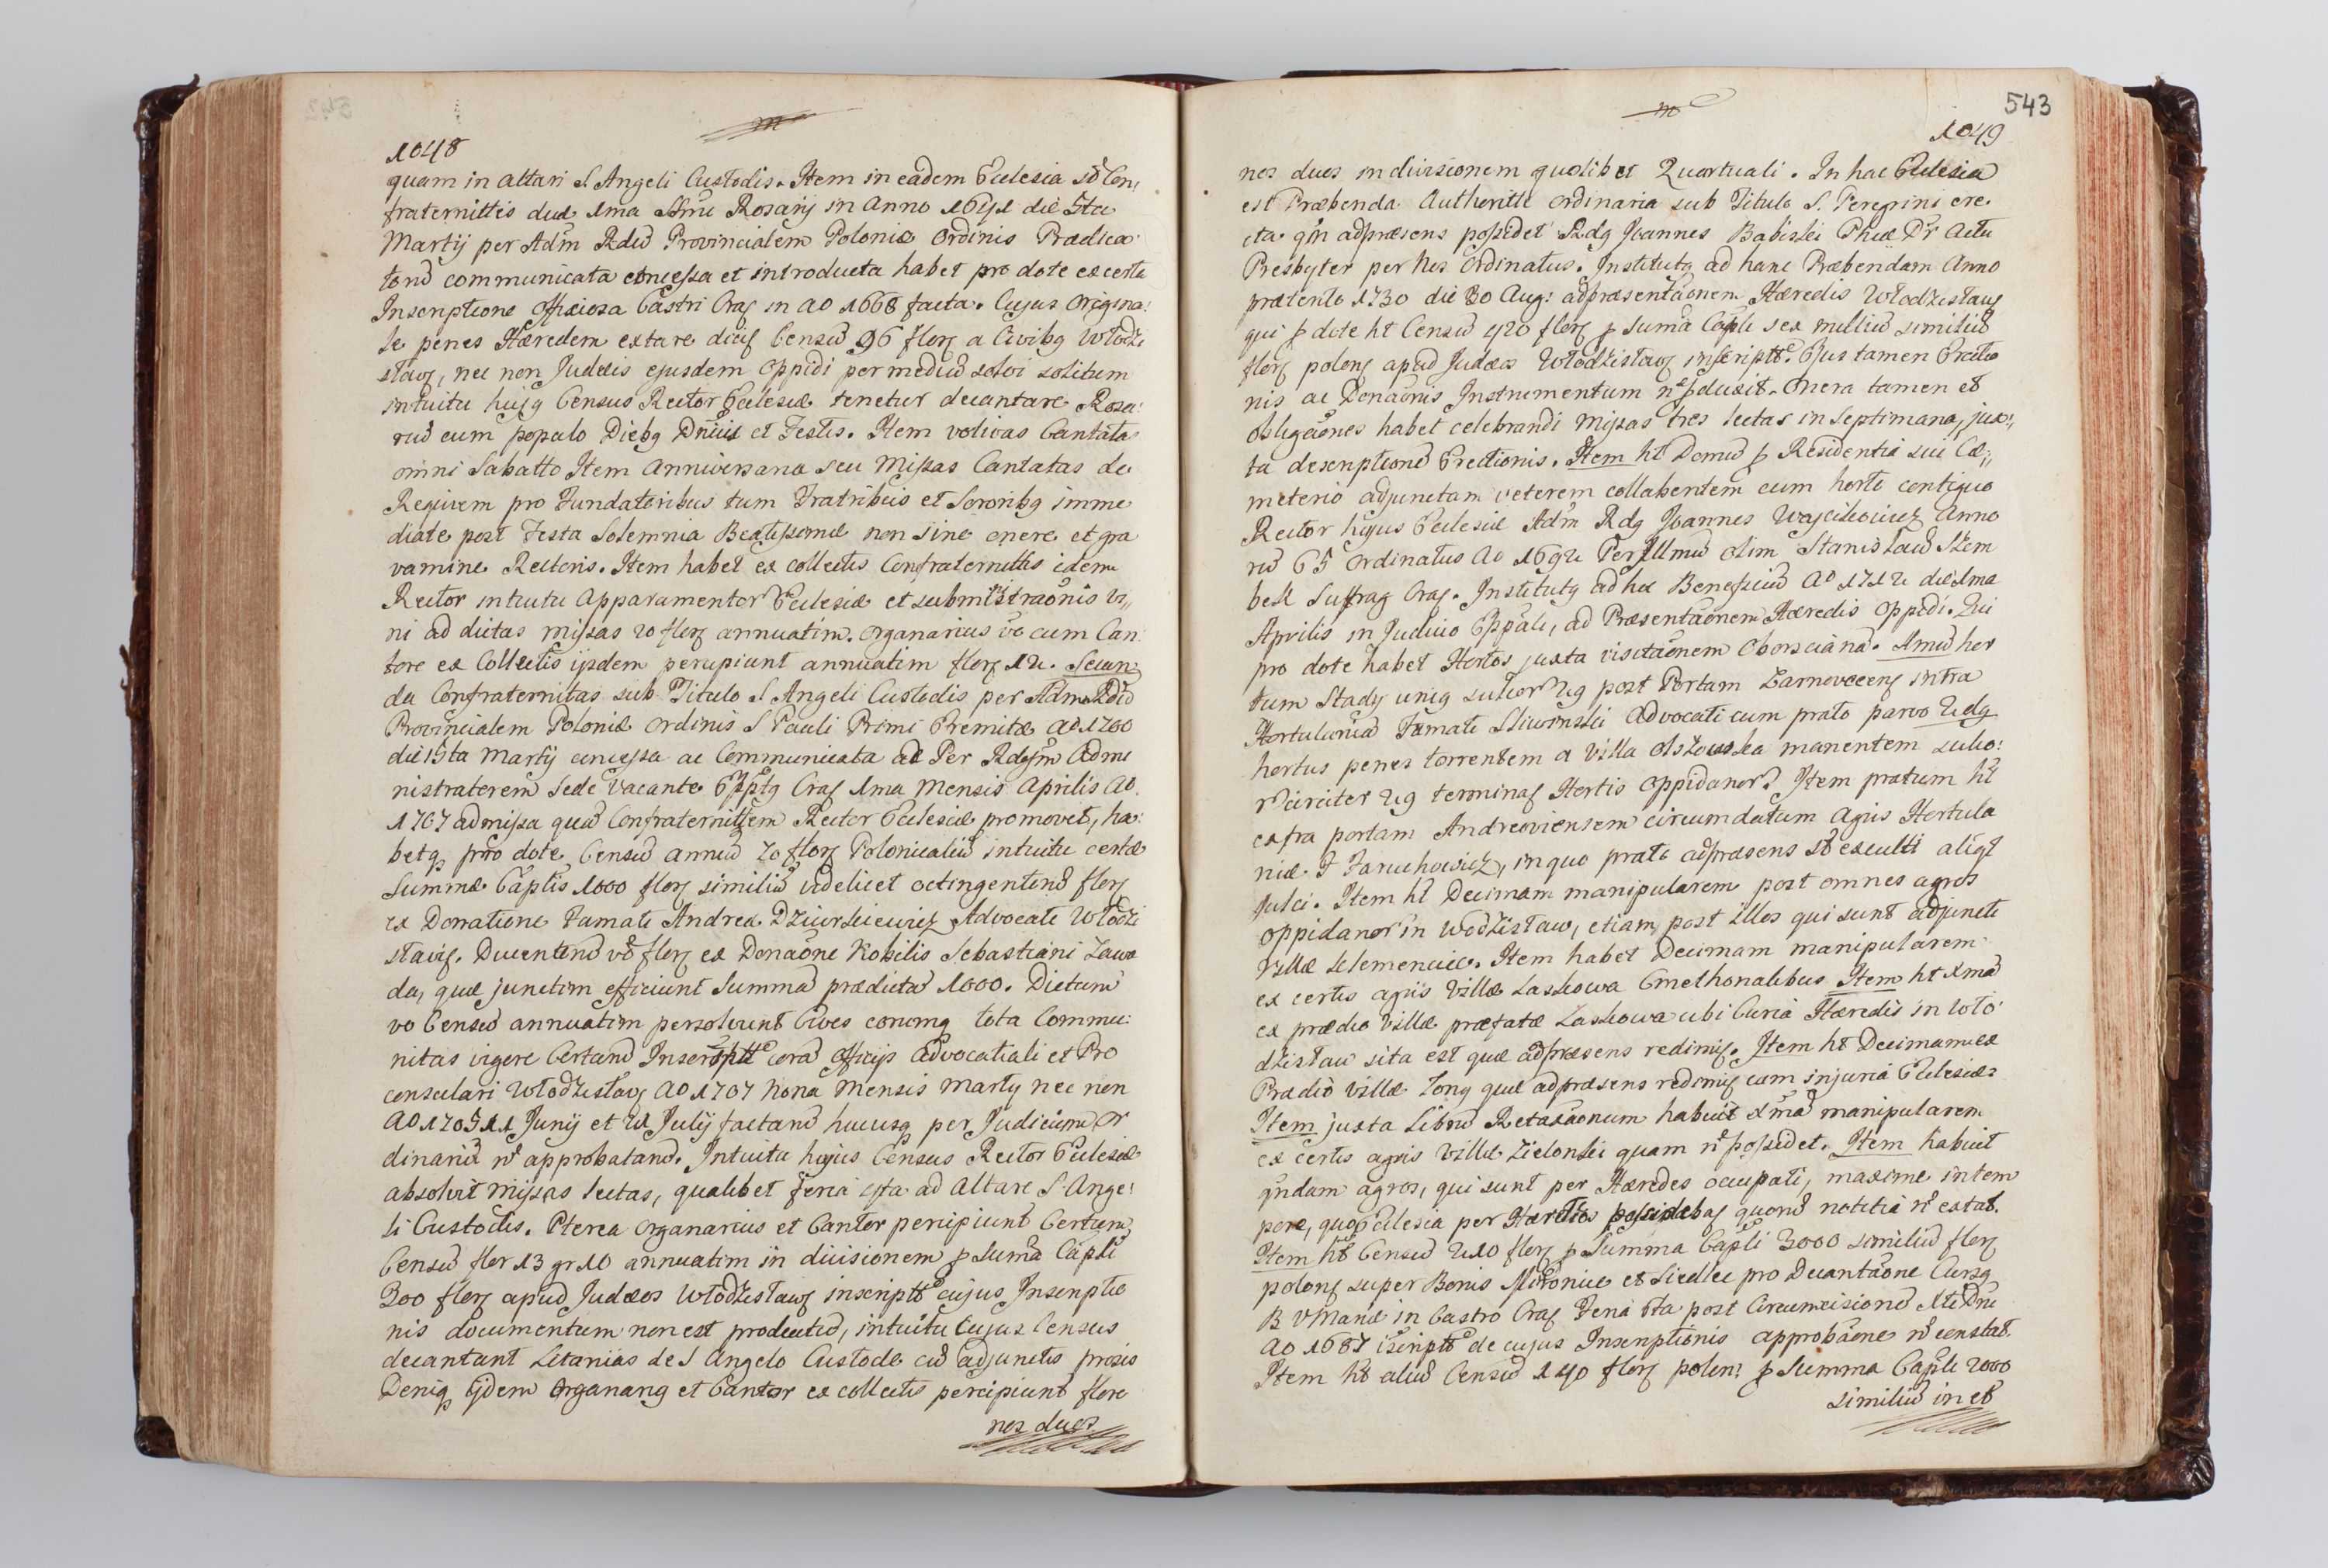 1048
quam in altari S. Angeli Custodis. Item in eadem Ecclesia st Con,
fraternittis duæ 1ma SSmi Rosarij in Anno 1641 die 5ta
Martij per Adm Rdu Provincialem Poloniæ Ordinis Prædica:
tord communicata concessa et introducta habet pro dote ex certa
Inscriptione Officiosa Castri Crac in Ao 1668 facta. Cujus Origina:
le penes Hæredem extare dicit Censu 96 flor a Civibq Wlodzi
slavs, nec non Judæis ejusdem Oppidi per mediu solvi solitum
intuitu hujq Census Rector Ecclesiæ tenetur decantare Rosa:
riu cum populo Diebq Dnicis et Festis. Item votivas Cantatas
omni Sabatto Item Anniversaria seu Missas Cantatas de
Requiem pro Fundatoribus tum Fratribus et Sororibq imme
diate post Festa Solemnia Beatissimæ non sine onere et gra
vamine Rectoris. Item habet ex collectis Confraternittis idem
Rector intuitu Apparamentor Ecclesiæ et subministraonis vi,,
ni ad dictas missas 20 flor annuatim. Organarius vo cum Can:
tore ex Collectis ijsdem percipiunt annuatim flor 12. Secun:
da Confraternitas sub Titulo S Angeli Custodis per Adm Rdu
Provincialem Poloniæ Ordinis S Pauli Primi Eremitæ Ao 1700
die 15ta Martij concessa ac Communicata ac Per Rdssm Admi
nistratorem Sede Vacante Eppatq Crac 1ma Mensis Aprilis Ao.
1707 admissa qua Confraternittem Rector Ecclesiæ promovet, ha:
betq pro dote Censu annuu 70 flor Polonicaliu intuitu certæ
Summæ Captis 1000 flor similiu videlicet octingentord flor
ex Donatione Famati Andrea Dziurkiewicz Advocati Wlodzi
slavis. Ducentord vo flor ex Donaone Nobilis Sebastiani Zawa
da, quæ junctim efficiunt Summa prædicta 1000. Dictum
vo Censu annuatim persolvunt Cives coномq tota Commu:
nitas vigore Certard Inscriptt cora Officijs Advocatiali et Pro
consulari Wlodzislavs Ao 1707 Nona Mensis Martij nec non
Ao 1705 11 Junij et 21 Julij factard hucusq per Judicium Or
dinariu nt approbatard. Intuitu hujus Census Rector Ecclesiæ
absolvit missas lectas, qualibet feria 3tia ad Altare S Ange:
li Custodis. Pterea Organarius et Cantor percipiunt Certum
Censu flor 13 gr 10 annuatim in divisionem p Suma Capli
300 flor apud Judæos Wlodzislavs inscriptt cujus Inscriptio
nis documentum non est productu, intuitu Cujus Census
decantant Letanias de S Angelo Custode cu adjunctis prosis
Deniq ijdem Organariq et Cantor ex collectis percipiunt flore
nos duos
543
1049
nos duos in divisionem quolibet Quartuali. In hac Ecclesia
est Præbenda Authoritte Ordinaria sub Titulo S. Peregrini ere.
cta qm adpræsens possidet Rdq Joannes Babiski Phiæ Dr Actu
Presbyter per Nos Ordinatus. Institutq ad hanc Præbendam Anno
prætento 1730 die 30 Aug: adpræsentaonem Hæredis Wlodzislavs
qui p dote ht Censu 420 flor p Suma Capli sex milliu similiu
flor polons apud Judæos Wlodzislavs inscriptt. Ejus tamen Erectio
nis ac Donaonis Instrumentum nt pduxit. Onera tamen et
obligaones habet celebrandi missas tres lectas in Septimana, jux:,
ta descriptione Erectionis. Item ht Domu p Residentia sui Cæ:,
meterio adjunctam veterem collabentem cum horto contiguo
Rector hujus Ecclesiæ Adm Rdq Joannes Wojcikowicz Anno
ru 65 Ordinatus Ao 1692 Per Illmu olim Stanislau Szem
bek Suffrag Crac. Institutq ad hoc Beneficiu Ao 1712 die 1ma
Aprilis in Judicio Eppali, ad Præsentaonem Hæredis Oppidi. Qui
pro dote habet Hortos juxta visitaonem Oborsciana. 1mu hor
tum Stadij uniq sulcor 29 post Portam Zarnoveens intra
Hortulania Famati Sliwinski Advocati cum prato parvo 2dq
hortus penes torrentem a Villa Olszowka manentem sulco:
r circiter 29 terminas Hortis Oppidanor. Item pratum ht
extra portam Andreoviensem circumdatum Agris Hortula
niæ F Faruchowicz, in quo prato adpræsens st exculti aliqt
sulci. Item ht Decimam manipularem post omnes agros
oppidanor in Wodzislaw, etiam post illos qui sunt adjuncti
Villæ Klemencice. Item habet Decimam manipularem
ex certis agris Villæ Laskowa Cmethonalibus Item ht Xma
ex prædio Villæ præfatæ Laskowa ubi Curia Hæredis in Wło
dzislaw sita est quæ adpræsens redimis. Item ht Decimam ex
Prædio Villæ Zony quæ adpræsens redimis cum injuria Ecclesiæ:
Item juxta Libru Retaxaonum habuit Xma manipularem
ex certis agris Villæ Zielonki quam nt possidet. Item habuit
qndam agros, qui sunt per Hæredes occupati, maxime in tem
pore, quo Ecclesia per Hæreticos possidebas quord notitia nt extat.
Item ht Censu 210 flor p Summa Capli 3000 similiu flor
polons super Bonis Mironice et Siedlce pro Decantaone Cursq
B V Mariæ in Castro Crac Feria 6ta post Circumcisione Xti Dni
Ao 1687 iscriptt de cujus Inscriptionis approbaone nt constat.
Item ht aliu Censu 140 flor polon: p Summa Capli 2000
similiu in et